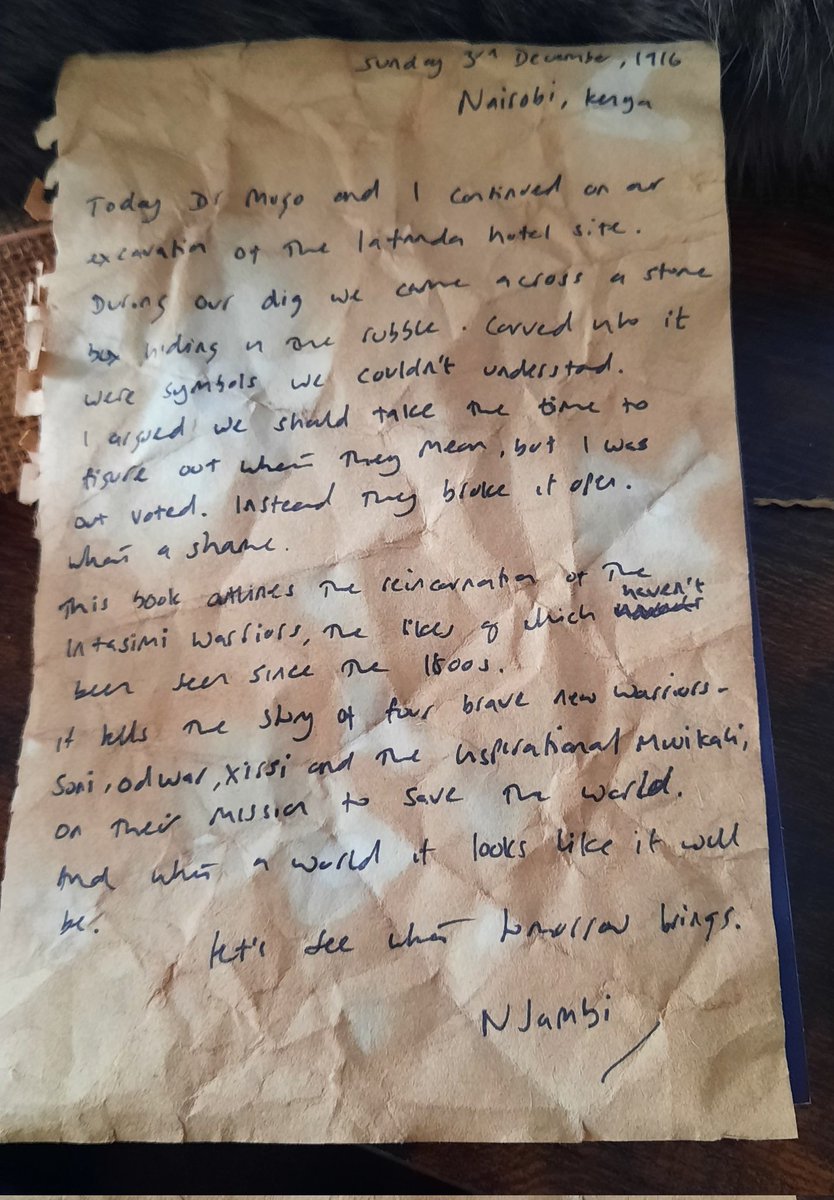 Sunday 3rd December, 1916
Nairobi, Kenya
Today Dr Mugo and I continued on our
excavation of the Intanda hotel site.
During our dig we came across a stone
box hiding in the rubble. Carved into it
were symbols we couldn't understand.
I argued we should take the time to
figure out what they mean, but I was
out voted. Instead they broke it open.
What a shame.
This book outlines the reincarnation of the
Intasimi Warriors, the likes of which haven't
been seen since the 1800s.
It tells the story of four brave new warriors-
Soni, Odwar, Xirsi and the inspirational Mwikali,
on their mission to save the world.
And what a world it looks like it will
be.
Let's see what tomorrow brings.
NJambi